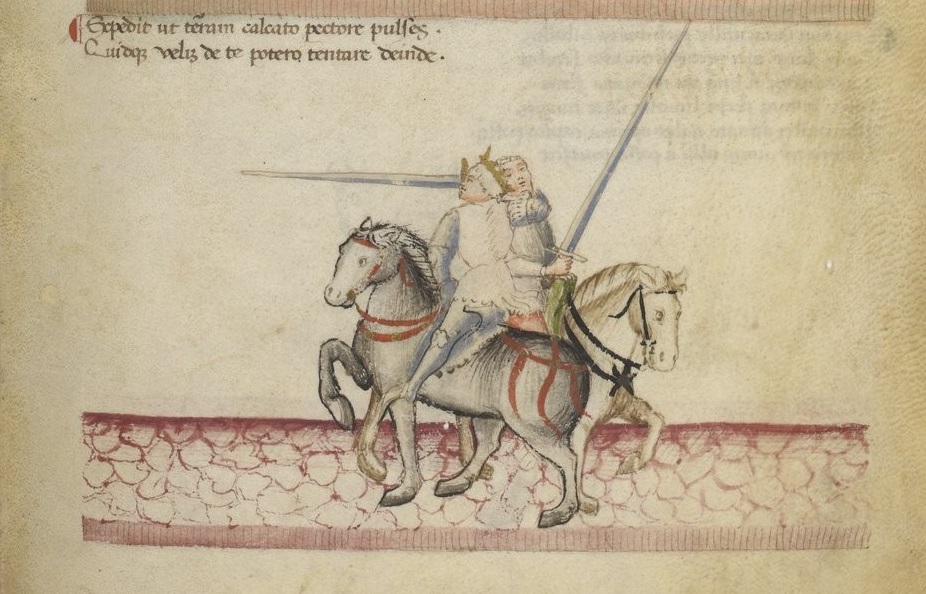 Sepedit ut tēram calcato pectore pulses .
Quidqꝫ velis de te potero tentare deinde .